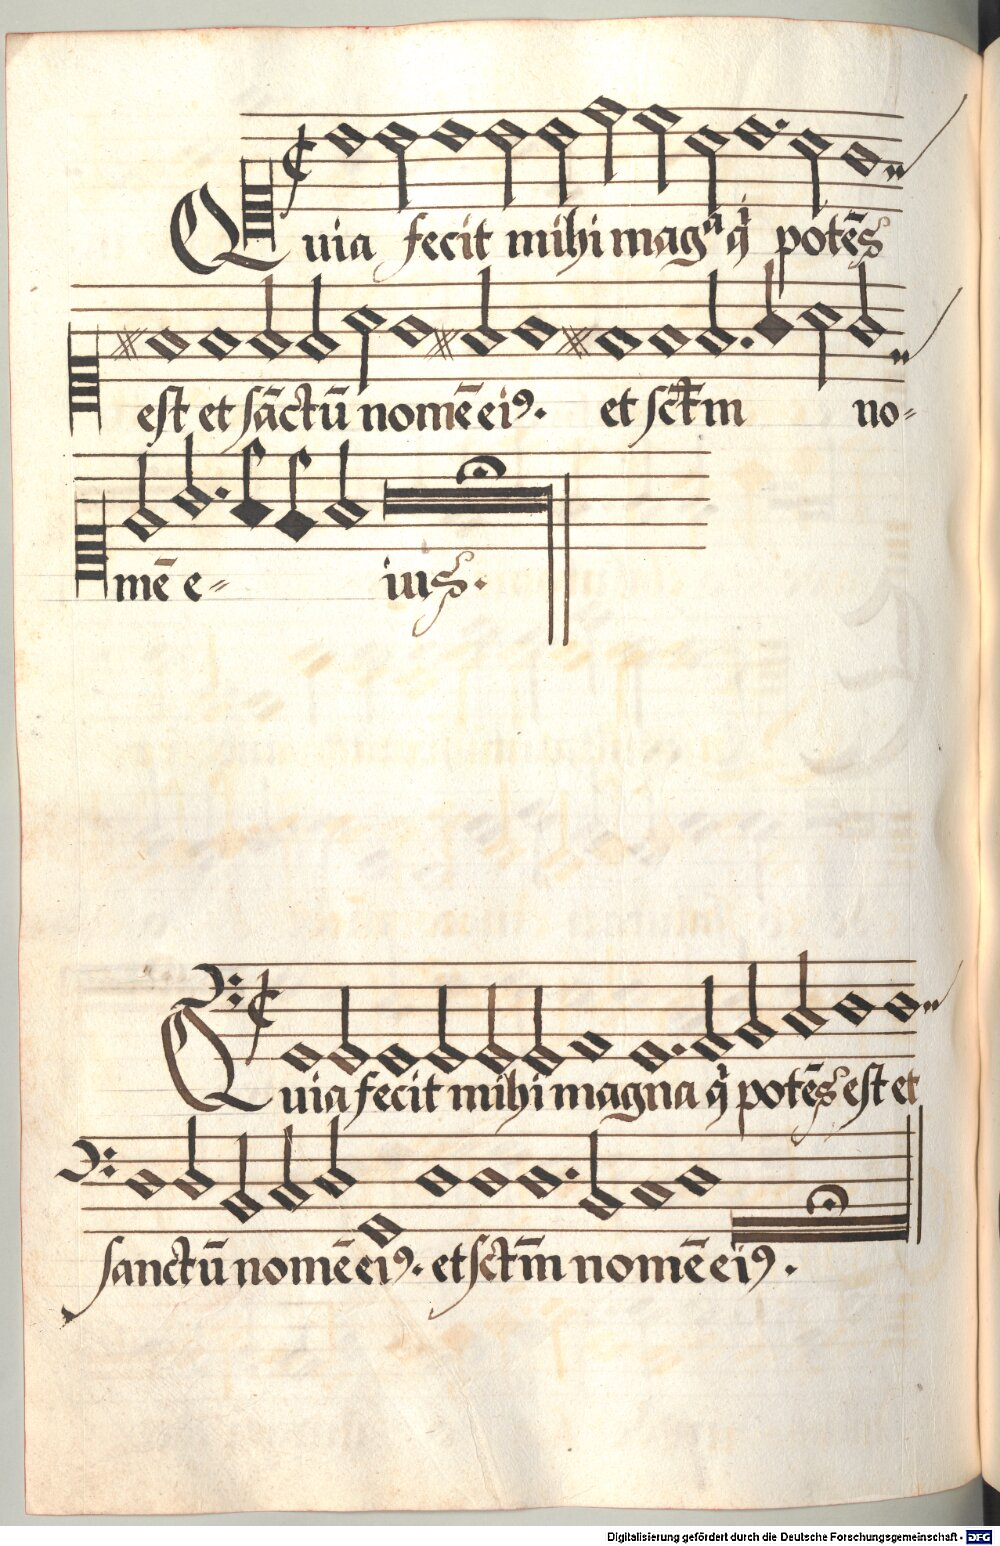 Quia fecit mihi magᵃ q̇ potēs
est et sāctū nomē eiꝰ. et sct̄m no=
mē e= ius.
Quia fecit mihi magna q̇ potēs est et
sanctū nomē eiꝰ. et sct̄m nomē eiꝰ.
Digitalisierung gefördert durch die Deutsche Forschungsgemeinschaft - DFG